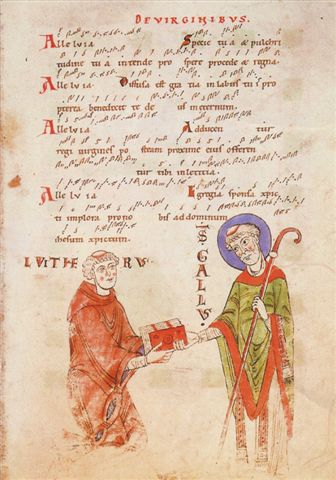 DE VIRGINIBVS.
Alleluia Specie tu a & pulchri
tudine tu a intende pro spere procede & regna.
Alleluia Diffusa est gra tia in labiis tu is pro
pterea benedixit te de us in eternum.
Alleluia Adducen tur
regi virgines po st eam proxime eius offeren
tur tibi in leticia.
Alleluia Egregia sponsa xpic
ti implora pro no bis ad dominum
ihesum xpictum.
LVITHE RVS
S GALLVS